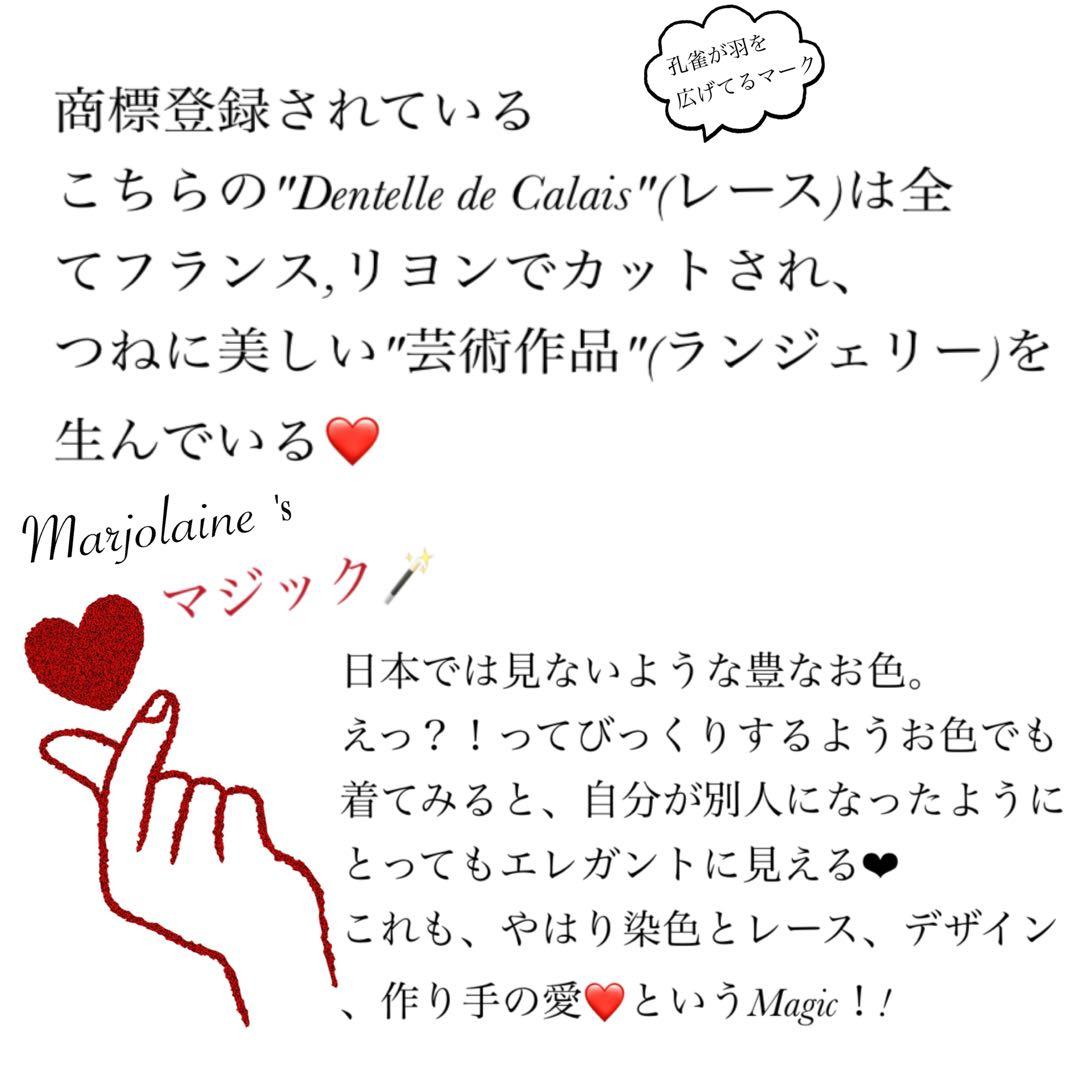 孔雀が羽を
広げてるマーク
商標登録されている
こちらの"Dentelle de Calais"(レース)は全
てフランス,リヨンでカットされ、
つねに美しい"芸術作品"(ランジェリー)を
生んでいる❤️
Marjolaine 's
マジック🪄
日本では見ないような豊なお色。
えっ？！ってびっくりするようお色でも
着てみると、自分が別人になったように
とってもエレガントに見える❤
これも、やはり染色とレース、デザイン
、作り手の愛❤️というMagic！!